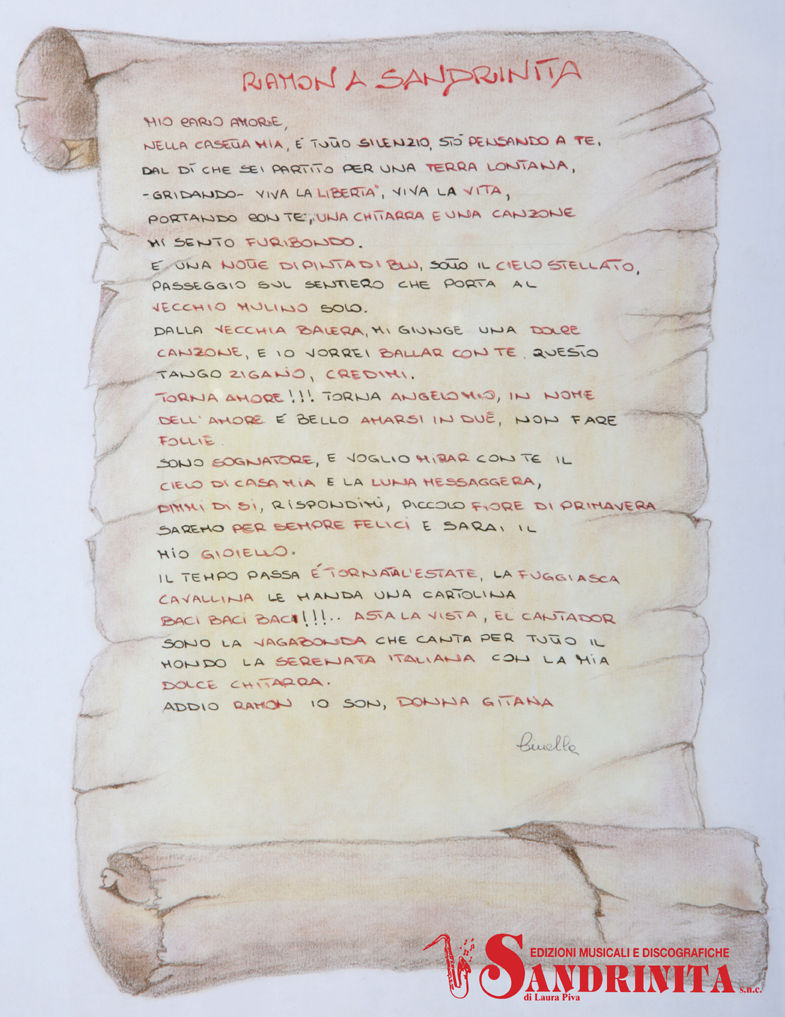 RAMON A SANDRINITA
MIO CARO AMORE,
NELLA CASETTA MIA, É TUTTO SILENZIO, STÓ PENSANDO A TE.
DAL DÍ CHE SEI PARTITO PER UNA TERRA LONTANA,
-GRIDANDO- VIVA LA LIBERTA', VIVA LA VITA,
PORTANDO CON TE, UNA CHITARRA E UNA CANZONE
MI SENTO FURIBONDO.
E UNA NOTTE DIPINTA DI BLU, SOTTO IL CIELO STELLATO,
PASSEGGIO SUL SENTIERO CHE PORTA AL
VECCHIO MULINO SOLO.
DALLA VECCHIA BALERA, MI GIUNGE UNA DOLCE
CANZONE, E IO VORREI BALLAR CON TE QUESTO
TANGO ZIGANO, CREDIMI.
TORNA AMORE!!! TORNA ANGELO MIO, IN NOME
DELL'AMORE É BELLO AMARSI IN DUE, NON FARE
FOLLIE.
SONO SOGNATORE, E VOGLIO MIRAR CON TE IL
CIELO DI CASA MIA E LA LUNA MESSAGGERA,
DIMMI DI SI, RISPONDIMI, PICCOLO FIORE DI PRIMAVERA
SAREMO PER SEMPRE FELICI E SARAI IL
MIO GIOIELLO.
IL TEMPO PASSA É TORNATA L'ESTATE, LA FUGGIASCA
CAVALLINA LE MANDA UNA CARTOLINA
BACI BACI BACI!!!.. ASTA LA VISTA, EL CANTADOR
SONO LA VAGABONDA CHE CANTA PER TUTTO IL
MONDO LA SERENATA ITALIANA CON LA MIA
DOLCE CHITARRA.
ADDIO RAMON IO SON, DONNA GITANA
EDIZIONI MUSICALI E DISCOGRAFICHE
SANDRINITA s.n.c.
di Laura Piva